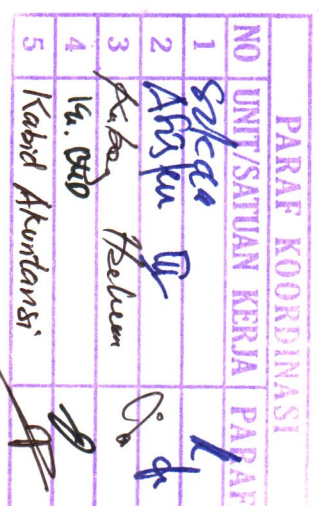 PARAF KOORDINASI
NO UNIT/SATUAN KERJA PARAF
1 Sekda
2 Asisten III
3 Kabag Hukum
4 Ka.
5 Kabid Akuntansi